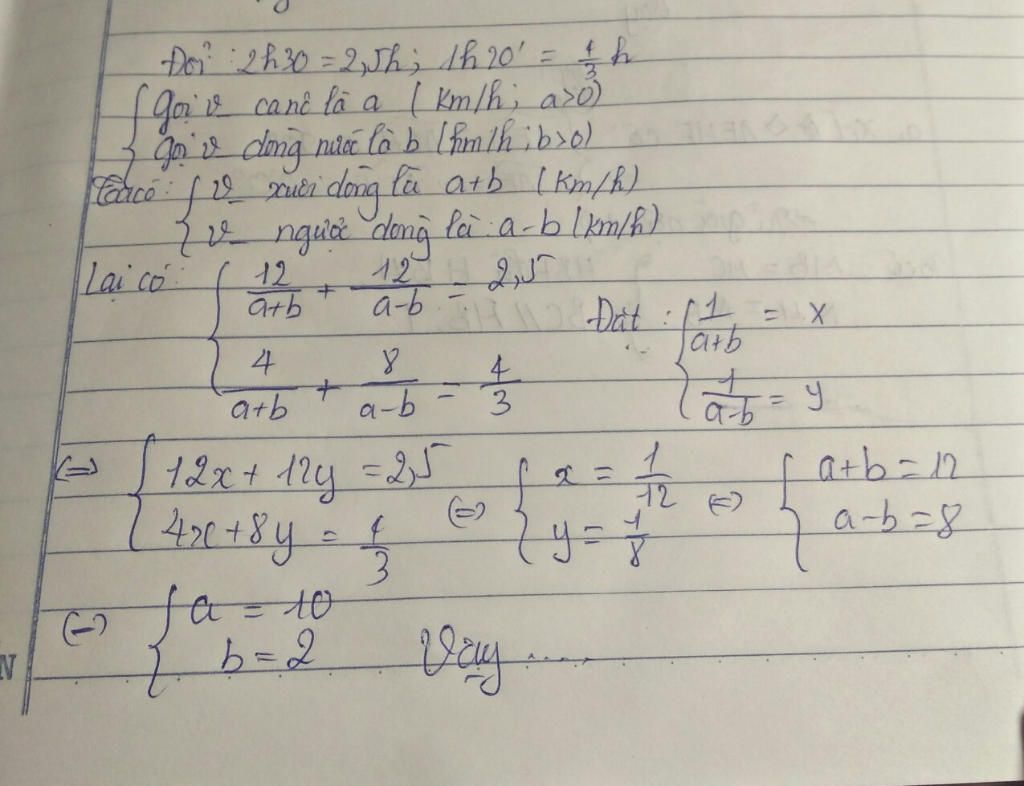 Đổi : 2h30 = 2,5h ; 1h20' = 4/3 h
{ Gọi v ca nô là a ( km/h ; a>0)
Gọi v dòng nước là b (km/h ; b>0)
Ta có : { v xuôi dòng là a+b (km/h)
v ngược dòng là : a-b (km/h)
Lại có : { 12/(a+b) + 12/(a-b) = 2,5
Đặt : { 1/(a+b) = x
4/(a+b) + 8/(a-b) = 4/3
1/(a-b) = y
(=) { 12x + 12y = 2,5 (=) { x = 1/12 (=) { a+b = 12
4x + 8y = 4/3 y = 1/8 a-b = 8
(=) { a = 10
b = 2 Vậy .....
N